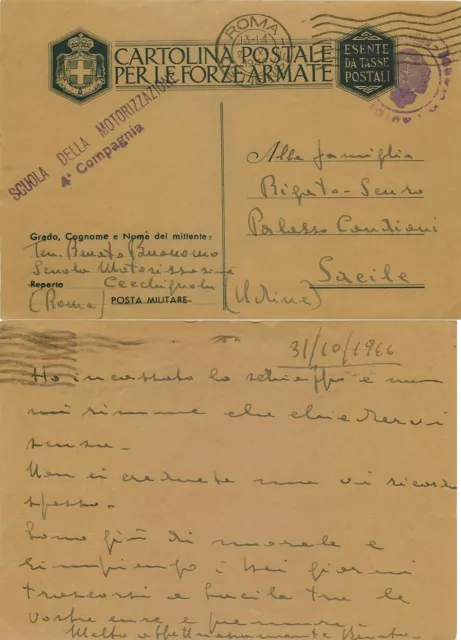 CARTOLINA POSTALE
PER LE FORZE ARMATE
ESENTE
DA TASSE
POSTALI
ROMA
SCUOLA DELLA MOTORIZZAZIONE
4ª Compagnia
Alla famiglia
Rigato-Scuro
Palazzo
Sacile
(Udine)
Grado, Cognome e Nome del mittente:
Ten. Renato Buonomo
Scuola Motorizzazione
Reparto Cecchignola
(Roma) POSTA MILITARE
31/10/19
Ho incassato lo schiaffo e non
mi rimane che chiedervi
scusa.
Non ci credete ma vi ricordo
spesso.
Sono giù di morale e
rimpiango i bei giorni
trascorsi a Sacile tra le
vostre cure e premure.
Molto affettuosamente Renato